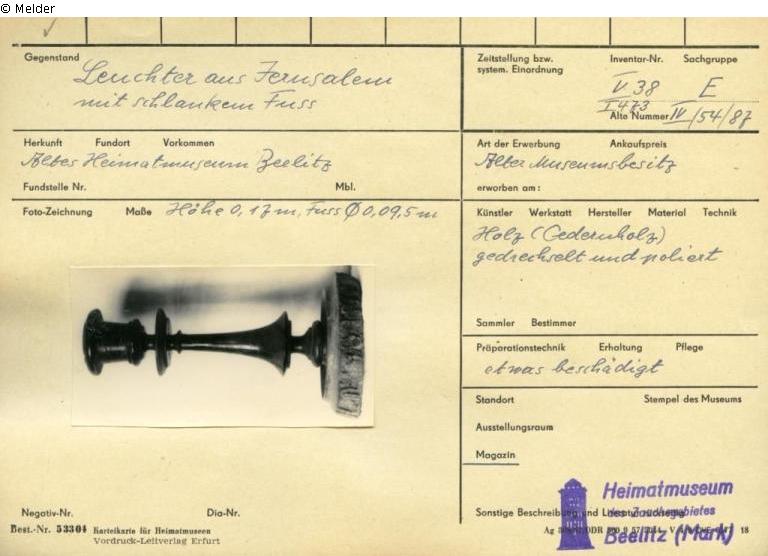 © Melder
Gegenstand
Leuchter aus Jerusalem
mit schlankem Fuss
Zeitstellung bzw.
system. Einordnung
Inventar-Nr. Sachgruppe
V 38 E
I 473
Alte Nummer IV/54/87
Herkunft Fundort Vorkommen
Altes Heimatmuseum Beelitz
Fundstelle Nr. Mbl.
Art der Erwerbung Ankaufspreis
Alter Museumsbesitz
erworben am:
Foto-Zeichnung Maße Höhe 0,17m, Fuss Ø 0,09,5 m
Künstler Werkstatt Hersteller Material Technik
Holz (Cedernholz)
gedrechselt und poliert
Sammler Bestimmer
Präparationstechnik Erhaltung Pflege
etwas beschädigt
Standort Stempel des Museums
Ausstellungsraum
Magazin
Negativ-Nr. Dia-Nr.
Sonstige Beschreibung und Literaturauszug
Heimatmuseum
des Zauchegebietes
Beelitz (Mark)
Best.-Nr. 53304 Karteikarte für Heimatmuseen
Vordruck-Leitverlag Erfurt
Ag DDR 18